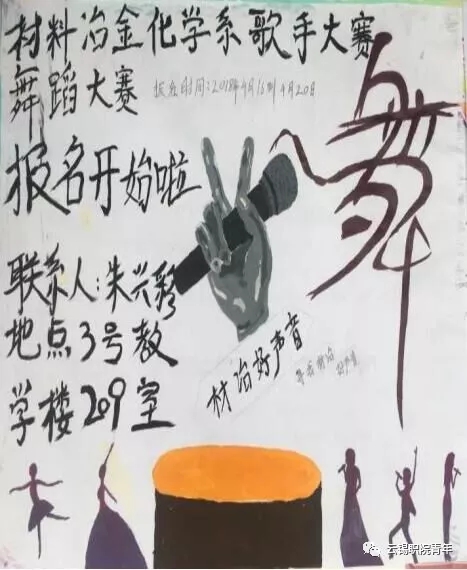 材料冶金化学系歌手大赛
舞蹈大赛
报名时间:2018年4月16到4月20日
报名开始啦
舞
联系人:朱兴彩
地点3号教
学楼209室
材冶好声音
云锡职院青年